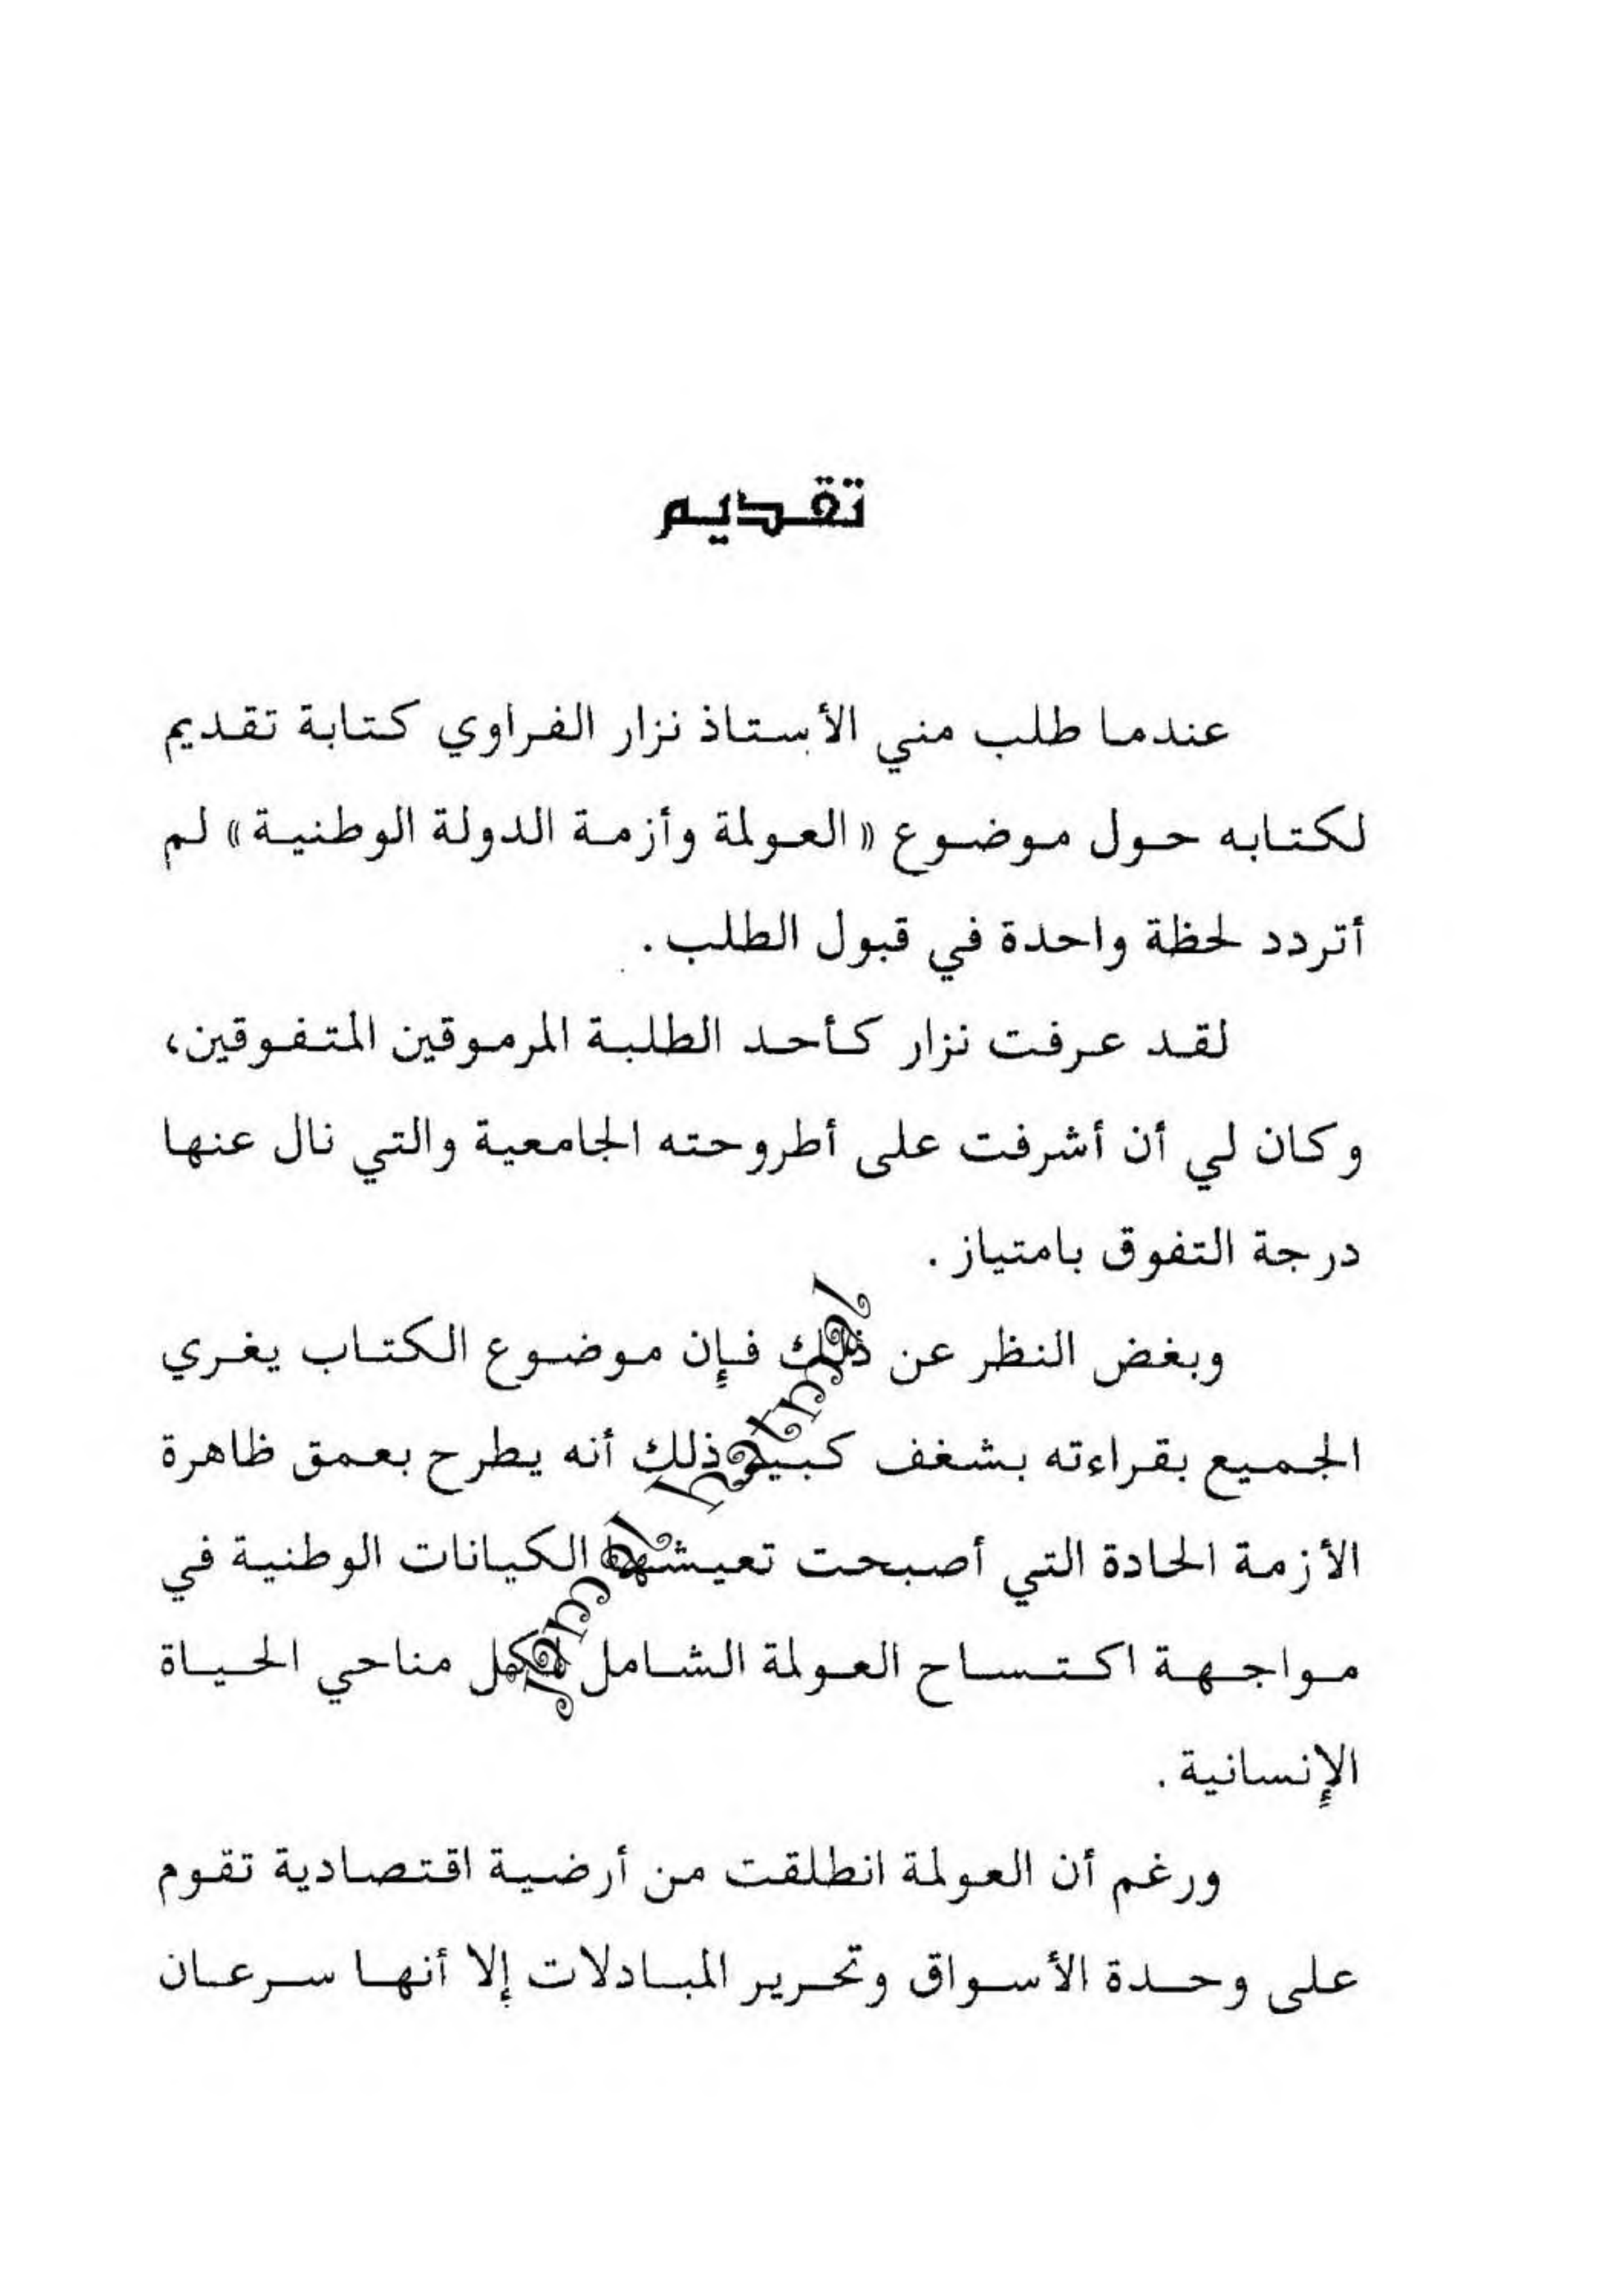 تقديم
عندما طلب مني الأستاذ نزار الفراوي كتابة تقديم
لكتابه حول موضوع «العولمة وأزمة الدولة الوطنية» لم
أتردد لحظة واحدة في قبول الطلب.
لقد عرفت نزار كأحد الطلبة المرموقين المتفوقين،
وكان لي أن أشرفت على أطروحته الجامعية والتي نال عنها
درجة التفوق بامتياز.
وبغض النظر عن ذلك فإن موضوع الكتاب يغري
الجميع بقراءته بشغف كبير ذلك أنه يطرح بعمق ظاهرة
الأزمة الحادة التي أصبحت تعيشها الكيانات الوطنية في
مواجهة اكتساح العولمة الشامل لكل مناحي الحياة
الإنسانية.
ورغم أن العولمة انطلقت من أرضية اقتصادية تقوم
على وحدة الأسواق وتحرير المبادلات إلا أنها سرعان